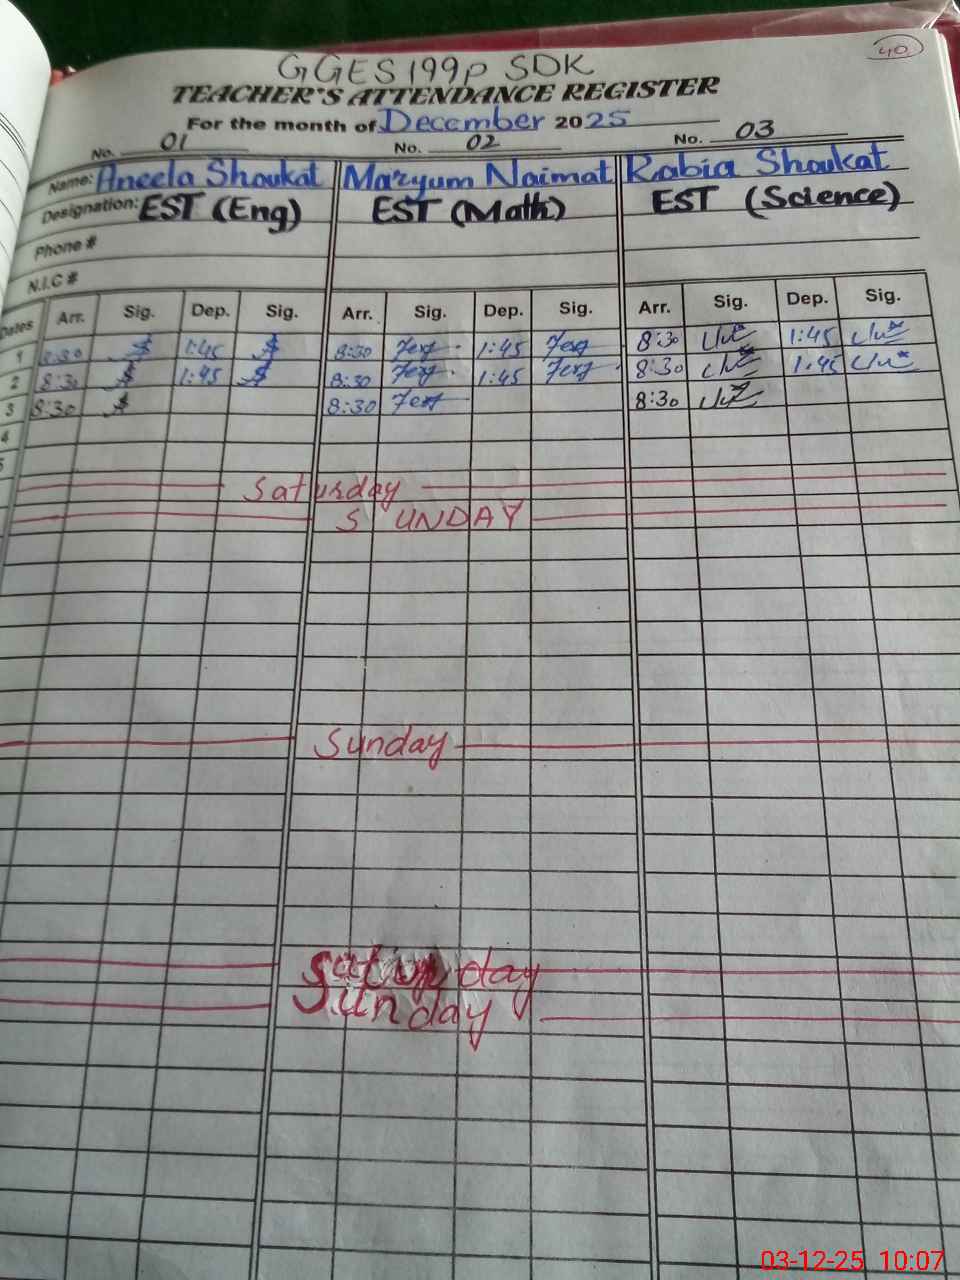 40
GGES 199p SDK
TEACHER'S ATTENDANCE REGISTER
For the month of December 2025
No. 01 No. 02 No. 03
Name: Aneela Shoukat Maryum Naimat Rabia Shoukat
Designation: EST (Eng) EST (Math) EST (Science)
Phone #
N.I.C #
Dates Arr. Sig. Dep. Sig. Arr. Sig. Dep. Sig. Arr. Sig. Dep. Sig.
1 8:30 1:45 8:30 1:45 8:30 1:45
2 8:30 1:45 8:30 1:45 8:30 1:45
3 8:30 8:30 8:30
4
5
Saturday
SUNDAY
Sunday
Saturday
Sunday
03-12-25 10:07